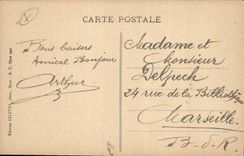 CARTE POSTALE
Bons baisers
Amical Bonjour
Arthur
Madame et
Monsieur
Delpech
24 rue de la Biblioth
Marseille.
B-d-R.